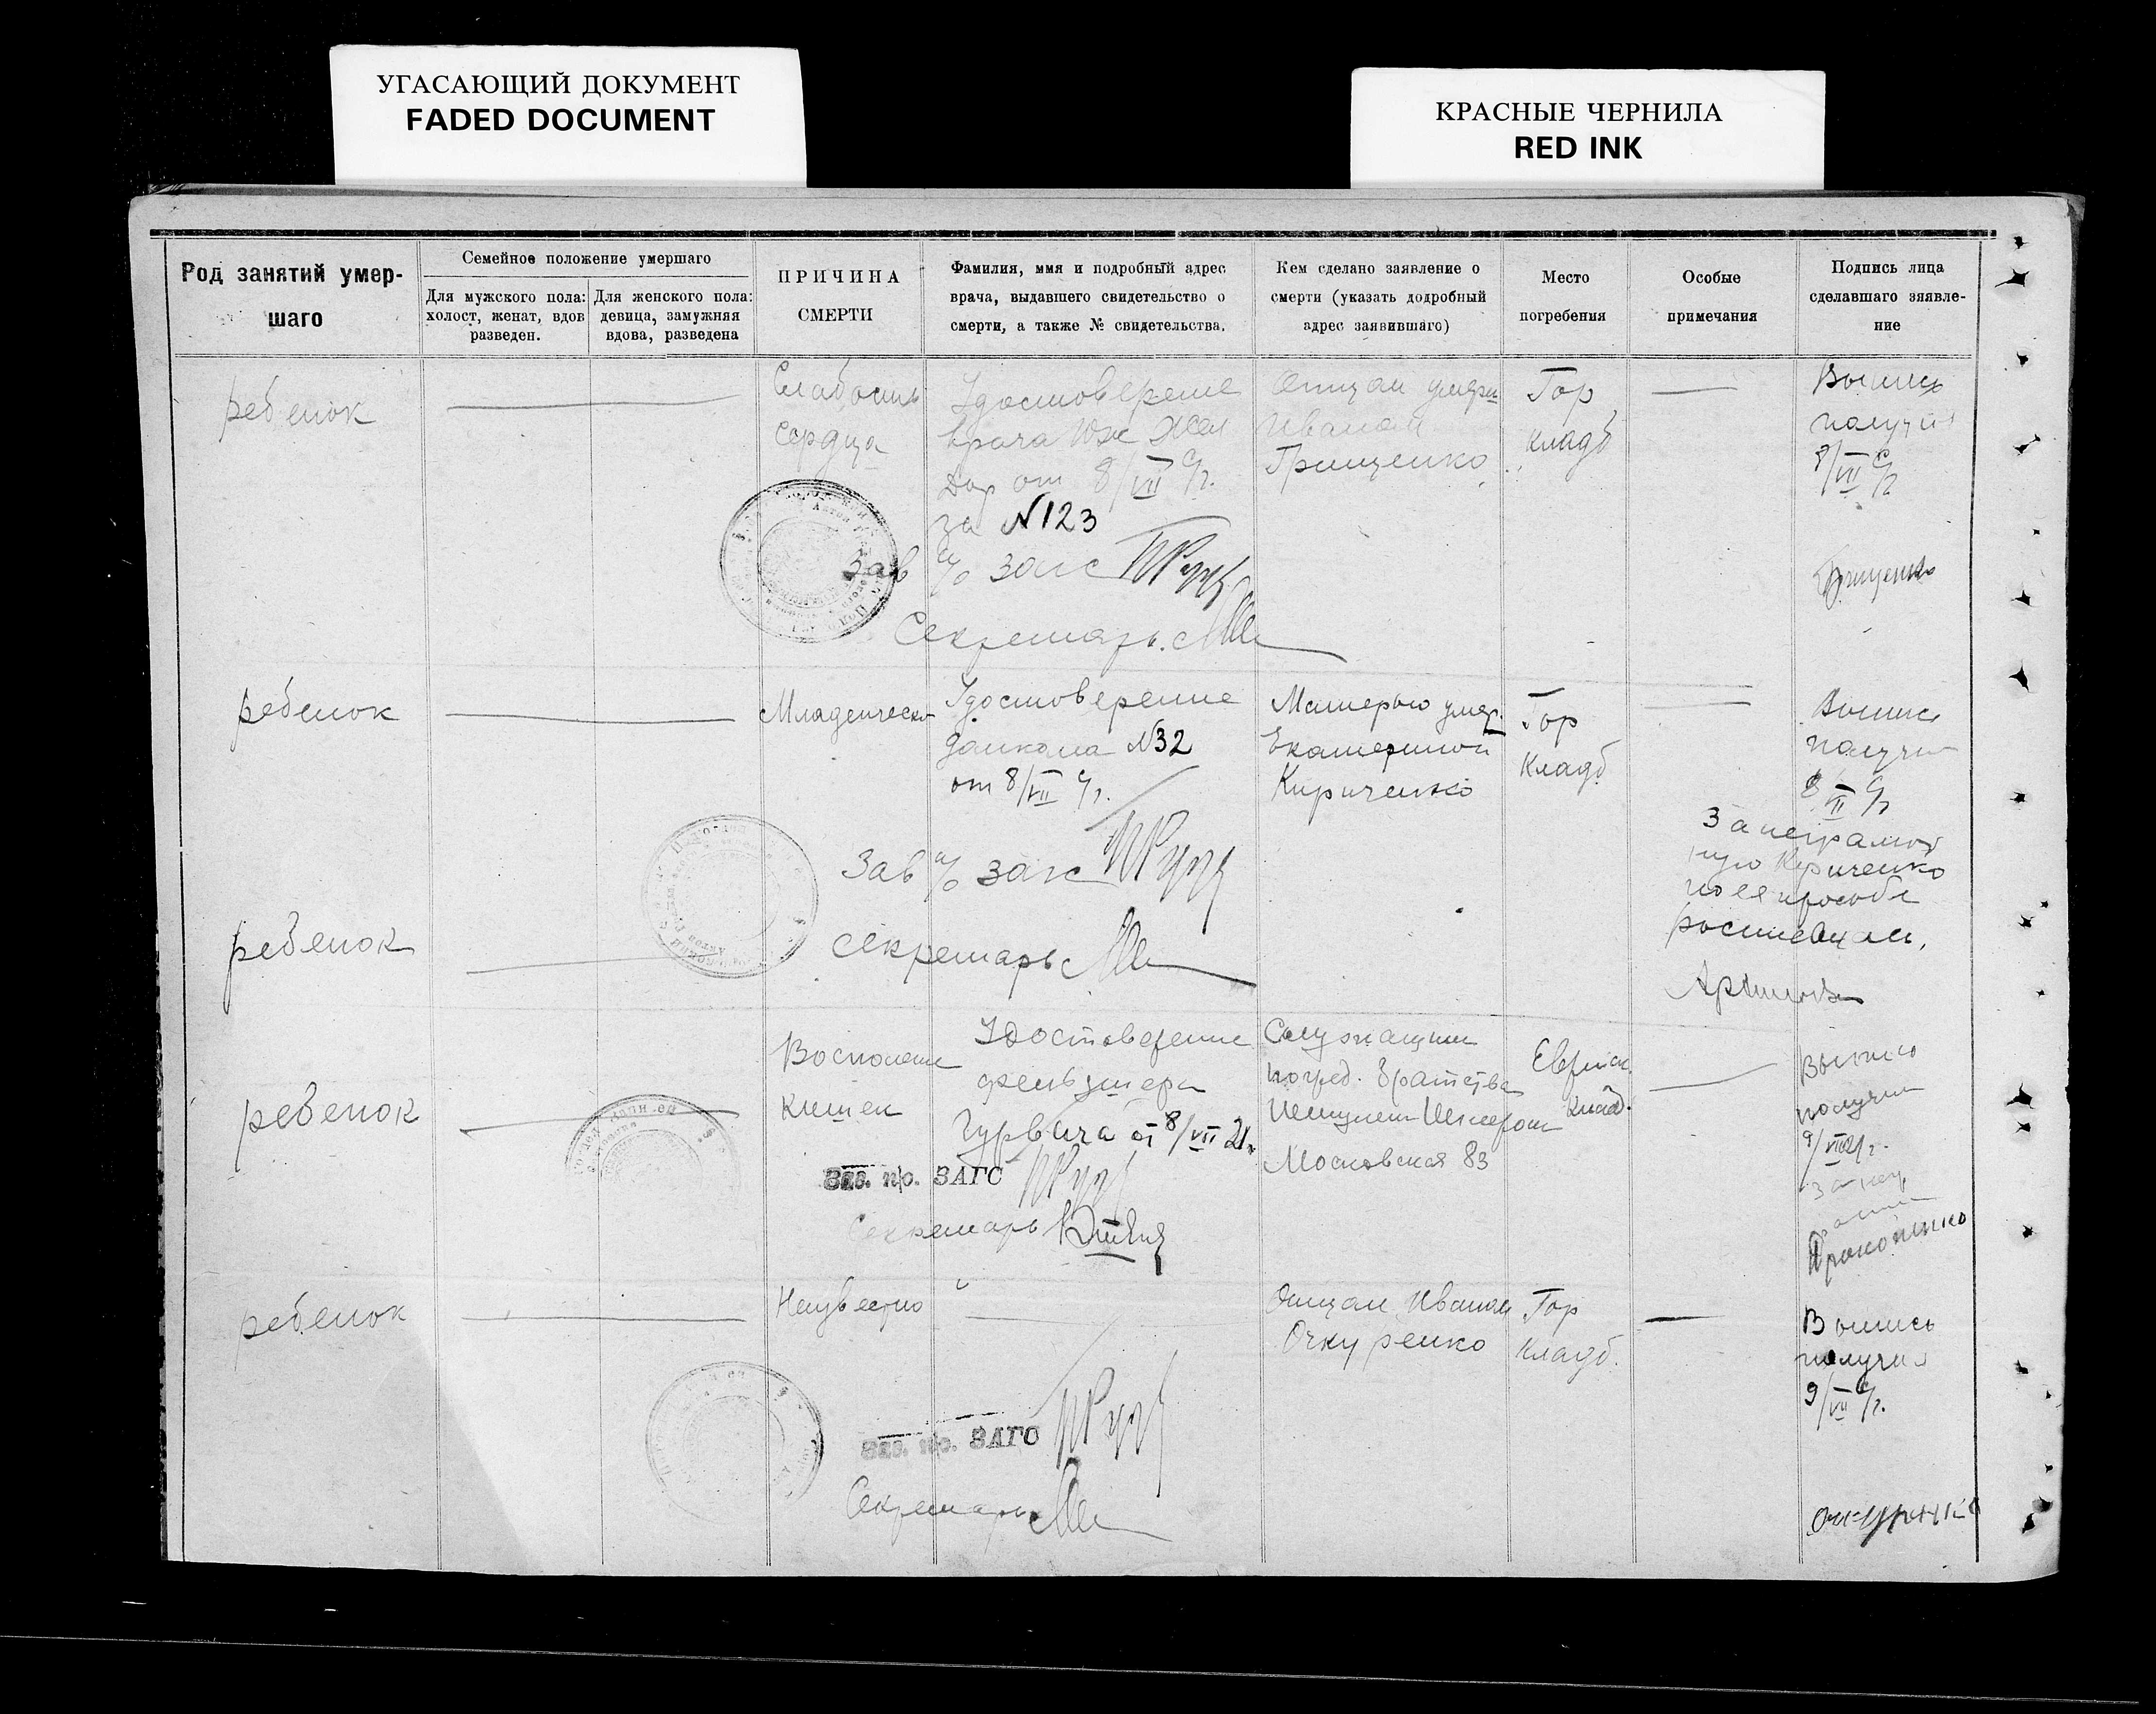 УГАСАЮЩИЙ ДОКУМЕНТ
FADED DOCUMENT
КРАСНЫЕ ЧЕРНИЛА
RED INK
Род занятий умер-
шаго
Семейное положение умершаго
Для мужского пола:
холост, женат, вдов
разведен.
Для женского пола:
девица, замужняя
вдова, разведена
ПРИЧИНА
СМЕРТИ
Фамилия, ммя и подробный адрес
врача, выдавшего свидетельство о
смерти, а также № свидетельства.
Кем сделано заявление о
смерти (указать додробный
адрес заявившаго)
Место
погребения
Особые
примечания
Подпись лица
сделавшаго зяявле-
ние
ребенок
Слабость
сердца
Удостоверение
врача Юж Жел
Дор от 8/VII с/г.
за N123
Зав п/о загс
Секретарь
Отцом умерш
Иваном
Грищенко
Гор
кладб
Выпись
получил
8/VII с/г
Грищенко
ребенок
Младенческ
Удостоверение
домкома N32
от 8/VII с/г.
Зав п/о загс
Секретарь
Матерью умер.
Екатериной
Кириченко
Гор
Кладб
Выпись
получил
8/VII с/г
За неграмот
ную Кириченко
по ея просьбе
ребенок
ребенок
Воспаление
кишек
Удостоверение
фельдшера
Гурвича от 8/VII 21г.
Зав. п/о. ЗАГС
Секретарь
Служащим
погреб. братства
Московская 83
Еврейск.
Клад.
Выпись
получил
9/VII 21г.
Прокопенко
ребенок
Неизвестно
Зав. п/о. ЗАГС
Секретарь
Отцом Иваном
Очкуренко
Гор
Кладб.
Выпись
получил
9/VII с/г.
Очкуренко